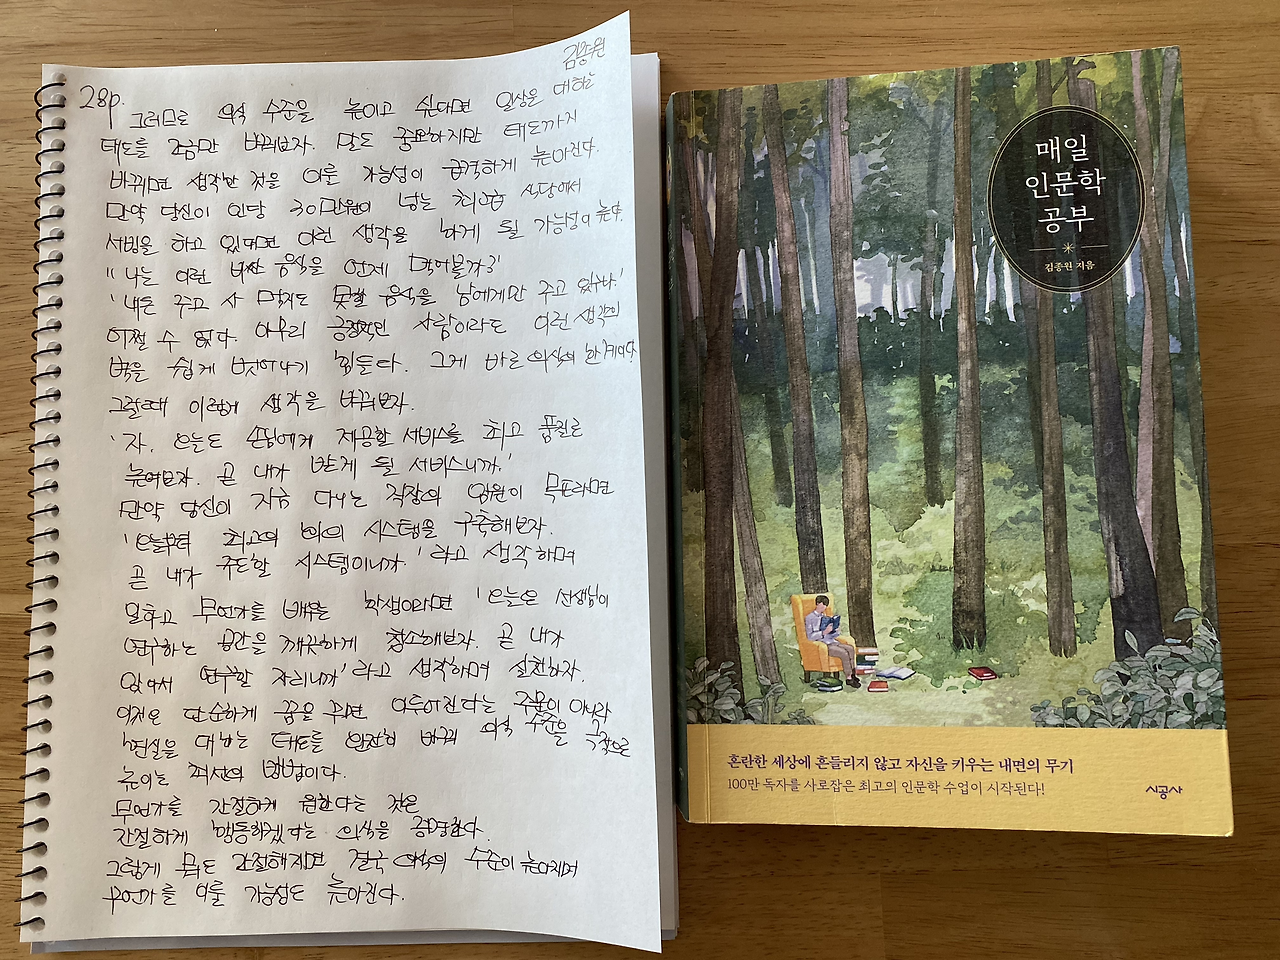 김종원
28p.
그러므로 의식 수준을 높이고 싶다면 일상을 대하는
태도를 조금만 바꿔보자. 말도 중요하지만 태도까지
바꾸면 생각한 것을 이룰 가능성이 급격하게 높아진다.
만약 당신이 인당 30만원이 넘는 최고급 식당에서
서빙을 하고 있다면 이런 생각을 하게 될 가능성이 높다.
"나는 이런 비싼 음식을 언제 먹어볼까?'
'내돈 주고 사 먹지도 못할 음식을 남에게만 주고 있구나.'
어쩔 수 없다. 아무리 긍정적인 사람이라도 이런 생각의
벽을 쉽게 벗어나기 힘들다. 그게 바로 의식의 한계이다.
그럴때 이렇게 생각을 바꿔보자.
'자. 오늘도 손님에게 제공할 서비스를 최고 품질로
높여보자. 곧 내가 받게 될 서비스니까.'
만약 당신이 지금 다니는 직장의 임원이 목표라면
'오늘부터 최고의 시스템을 구축해보자.
곧 내가 주도할 시스템이니까.' 라고 생각하며
일하고 무언가를 배우는 학생이라면 '오늘은 선생님이
연구하는 공간을 깨끗하게 청소해보자. 곧 내가
앉아서 연구할 자리니까' 라고 생각하며 실천하자.
이것은 단순하게 꿈을 꾸면 이루어진다는 주문이 아니라
현실을 대하는 태도를 완전히 바꿔 의식 수준을 극적으로
높이는 최선의 방법이다.
무언가를 간절하게 원한다는 것은
간절하게 행동하겠다는 의식을 증명한다.
그렇게 뭐든 간절해지면 결국 의식의 수준이 높아지며
무언가를 이룰 가능성도 높아진다.
매일
인문학
공부
김종원 지음
혼란한 세상에 흔들리지 않고 자신을 키우는 내면의 무기
100만 독자를 사로잡은 최고의 인문학 수업이 시작된다!
시공사